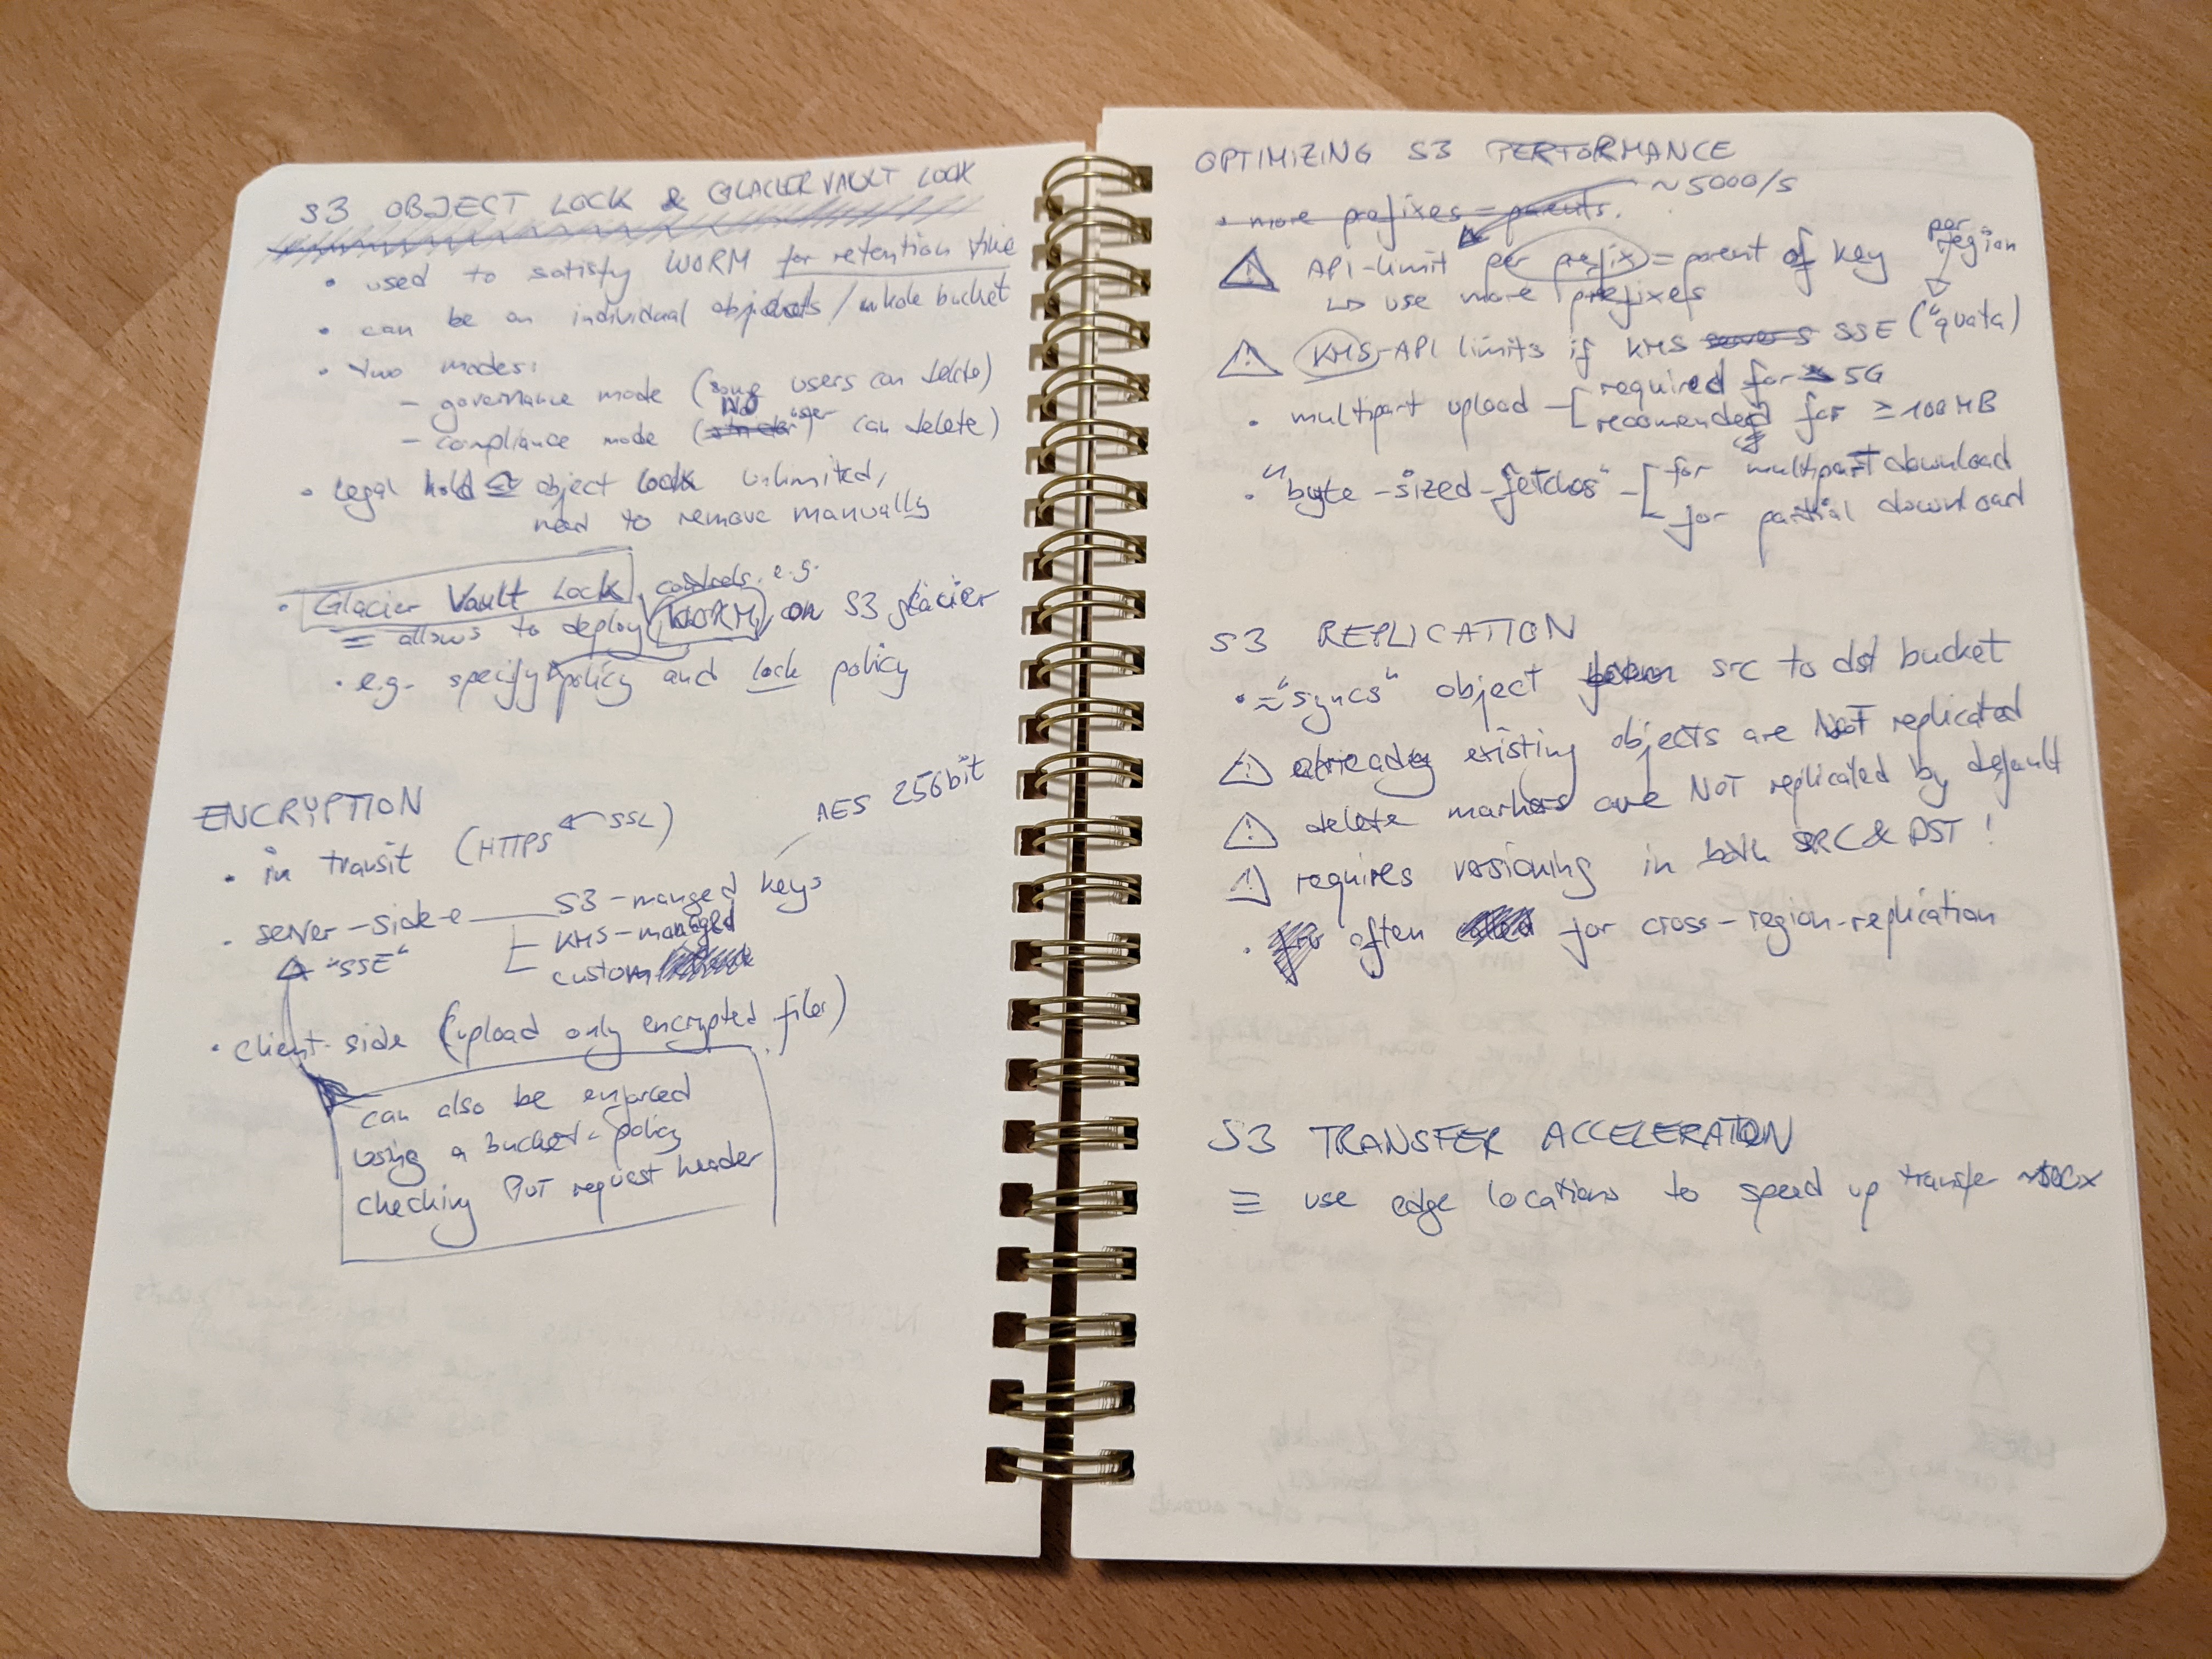 S3 OBJECT LOCK & GLACIER VAULT LOCK
• used to satisfy WORM for retention time
• can be on individual objects / whole bucket
• two modes:
– governance mode (some users can delete)
– compliance mode (NO user can delete)
• Legal hold ≅ object lock unlimited,
need to remove manually
• Glacier Vault Lock
controls. e.g.
≡ allows to deploy (WORM) on S3 glacier
• e.g. specify policy and lock policy
ENCRYPTION
AES 256bit
• in transit (HTTPS ← SSL)
• server-side-e
S3-manged keys
"SSE"
KMS-managed
custom
• client-side (upload only encrypted files)
can also be enforced
using a bucket-policy
checking PUT request header
OPTIMIZING S3 PERFORMANCE
~5000/s
• more prefixes = parents.
per region
⚠ API-limit per prefix = parent of key
↳ use more prefixes
⚠ KMS-API limits if KMS SSE ("quata)
• multipart upload – [ required for 5G
recomended for ≥ 100MB
• "byte-sized-fetches" – [ for multipart download
for partial download
S3 REPLICATION
• ≈ "syncs" object from src to dst bucket
⚠ already existing objects are NOT replicated
⚠ delete markers are NOT replicated by default
⚠ requires versioning in both SRC & DST !
• often for cross-region-replication
S3 TRANSFER ACCELERATION
≡ use edge locations to speed up transfer